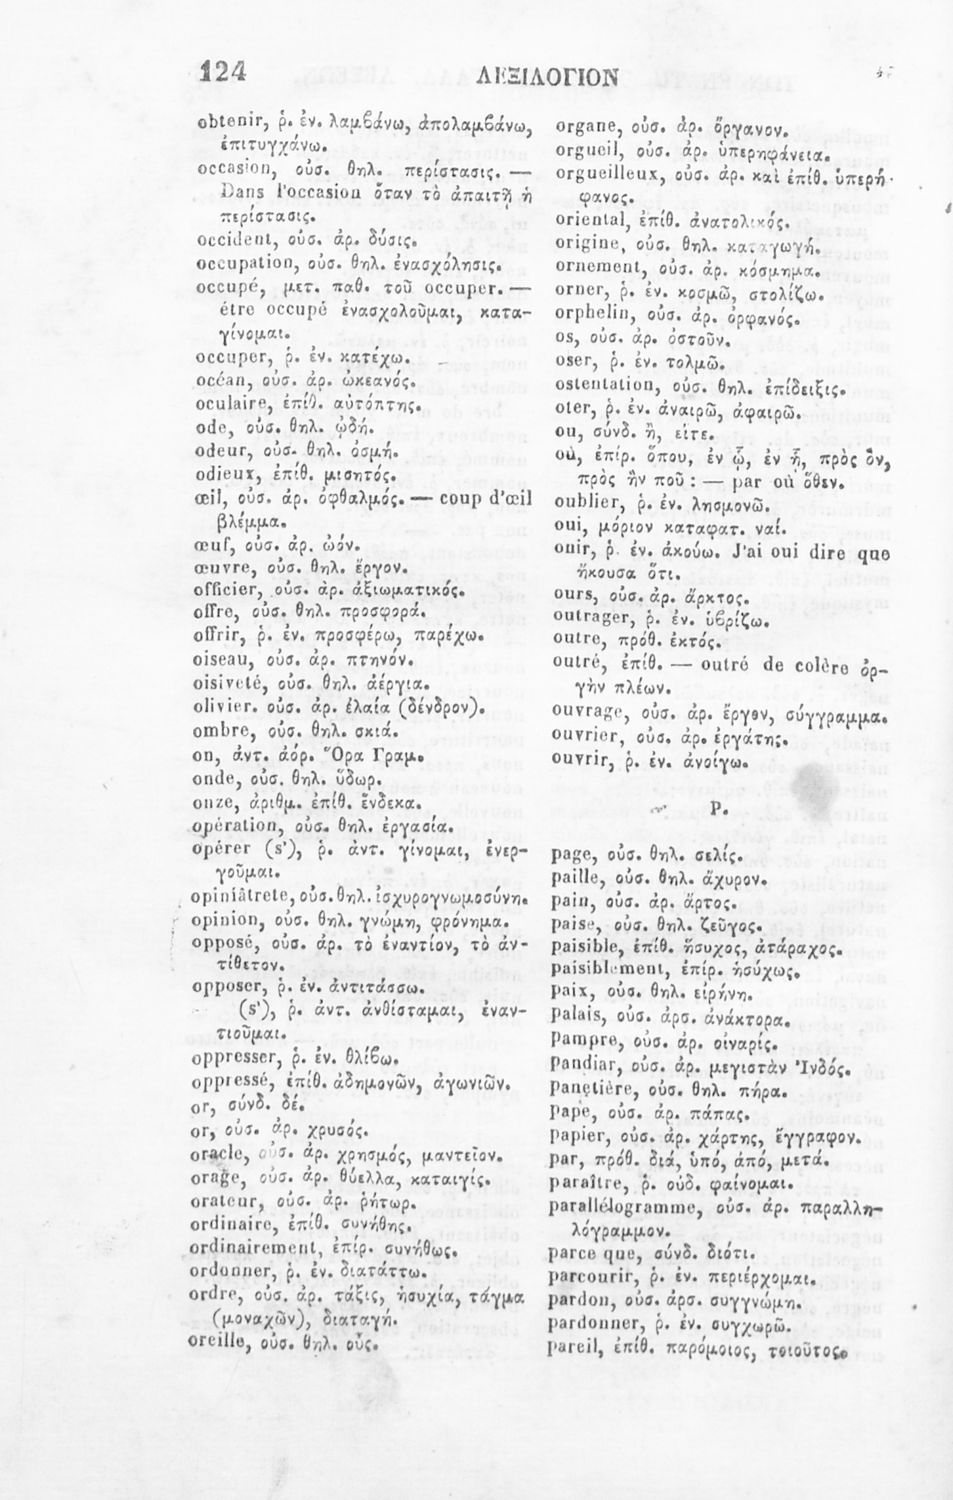 124
ΛΕΞΙΛΟΓΙΟΝ
obtenir, ῥ. ἐν. λαμϐάνω, ἀπολαμϐάνω,
ἐπιτυγχάνω.
occasion, οὐσ. θηλ. περίστασις. —
Dans l'occasion ὅταν τὸ ἀπαιτῇ ἡ
περίστασις.
occident, οὐσ. ἀρ. δύσις.
occupation, οὐσ. θηλ. ἐνασχόλησις.
occupé, μετ. παθ. τοῦ occuper. —
étre occupé ἐνασχολοῦμαι, κατα-
γίνομαι.
occuper, ῥ. ἐν. κατέχω.
océan, οὐσ. ἀρ. ὠκεανός.
oculaire, ἐπίθ. αὐτόπτης.
ode, οὐσ. θηλ. ᾠδή.
odeur, οὐσ. θηλ. ὀσμή.
odieux, ἐπίθ. μισητός.
œil, οὐσ. ἀρ. ὀφθαλμός. — coup d'œil
βλέμμα.
œuf, οὐσ. ἀρ. ὠόν.
œuvre, οὐσ. θηλ. ἔργον.
officier, οὐσ. ἀρ. ἀξιωματικός.
offre, οὐσ. θηλ. προσφορά.
offrir, ῥ. ἐν. προσφέρω, παρέχω.
oiseau, οὐσ. ἀρ. πτηνόν.
oisiveté, οὐσ. θηλ. ἀέργια.
olivier. οὐσ. ἀρ. ἐλαία (δένδρον).
ombre, οὐσ. θηλ. σκιά.
on, ἀντ. ἀόρ. Ὅρα Γραμ.
onde, οὐσ. θηλ. ὕδωρ.
onze, ἀριθμ. ἐπίθ. ἕνδεκα.
opération, οὐσ. θηλ. ἐργασία.
opérer (s'), ῥ. ἀντ. γίνομαι, ἐνερ-
γοῦμαι.
opiniâtrete, οὐσ. θηλ. ἰσχυρογνωμοσύνη.
opinion, οὐσ. θηλ. γνώμη, φρόνημα.
opposé, οὐσ. ἀρ. τὸ ἐναντίον, τὸ ἀν-
τίθετον.
opposer, ῥ. ἐν. ἀντιτάσσω.
(s'), ῥ. ἀντ. ἀνθίσταμαι, ἐναν-
τιοῦμαι.
oppresser, ῥ. ἐν. θλίϐω.
oppressé, ἐπίθ. ἀδημονῶν, ἀγωνιῶν.
or, σύνδ. δέ.
or, οὐσ. ἀρ. χρυσός.
oracle, οὐσ. ἀρ. χρησμός, μαντεῖον.
orage, οὐσ. ἀρ. θύελλα, καταιγίς.
orateur, οὐσ. ἀρ. ῥήτωρ.
ordinaire, ἐπίθ. συνήθης.
ordinairement, ἐπίρ. συνήθως.
ordonner, ῥ. ἐν. διατάττω.
ordre, οὐσ. ἀρ. τάξις, ἡσυχία, τάγμα
(μοναχῶν), διαταγή.
oreille, οὐσ. θηλ. οὖς.
organe, οὐσ. ἀρ. ὄργανον.
orgueil, οὐσ. ἀρ. ὑπερηφάνεια.
orgueilleux, οὐσ. ἀρ. καὶ ἐπίθ. ὑπερή-
φανος.
oriental, ἐπίθ. ἀνατολικός.
origine, οὐσ. θηλ. καταγωγή.
ornement, οὐσ. ἀρ. κόσμημα.
orner, ῥ. ἐν. κοσμῶ, στολίζω.
orphelin, οὐσ. ἀρ. ὀρφανός.
os, οὐσ. ἀρ. ὀστοῦν.
oser, ῥ. ἐν. τολμῶ.
ostentation, οὐσ. θηλ. ἐπίδειξις.
oter, ῥ. ἐν. ἀναιρῶ, ἀφαιρῶ.
ou, σύνδ. ἢ, εἴτε.
où, ἐπίρ. ὅπου, ἐν ᾧ, ἐν ᾗ, πρὸς ὃν,
πρὸς ἣν ποῦ : — par où ὅθεν.
oublier, ῥ. ἐν. λησμονῶ.
oui, μόριον καταφατ. ναί.
ouir, ῥ. ἐν. ἀκούω. J'ai oui dire que
ἤκουσα ὅτι.
ours, οὐσ. ἀρ. ἄρκτος.
outrager, ῥ. ἐν. ὑϐρίζω.
outre, πρόθ. ἐκτός.
outré, ἐπίθ. — outré de colère ὀρ-
γὴν πλέων.
ouvrage, οὐσ. ἀρ. ἔργον, σύγγραμμα.
ouvrier, οὐσ. ἀρ. ἐργάτης.
ouvrir, ῥ. ἐν. ἀνοίγω.
P.
page, οὐσ. θηλ. σελίς.
paille, οὐσ. θηλ. ἄχυρον.
pain, οὐσ. ἀρ. ἄρτος.
paise, οὐσ. θηλ. ζεῦγος.
paisible, ἐπίθ. ἥσυχος, ἀτάραχος.
paisiblement, ἐπίρ. ἡσύχως.
paix, οὐσ. θηλ. εἰρήνη.
palais, οὐσ. ἀρσ. ἀνάκτορα.
pampre, οὐσ. ἀρ. οἰναρίς.
pandiar, οὐσ. ἀρ. μεγιστὰν Ἰνδός.
panetière, οὐσ. θηλ. πήρα.
pape, οὐσ. ἀρ. πάπας.
papier, οὐσ. ἀρ. χάρτης, ἔγγραφον.
par, πρόθ. διά, ὑπό, ἀπό, μετά.
paraître, ῥ. οὐδ. φαίνομαι.
parallélogramme, οὐσ. ἀρ. παραλλη-
λόγραμμον.
parce que, σύνδ. διότι.
parcourir, ῥ. ἐν. περιέρχομαι.
pardon, οὐσ. ἀρσ. συγγνώμη.
pardonner, ῥ. ἐν. συγχωρῶ.
pareil, ἐπίθ. παρόμοιος, τοιοῦτος.